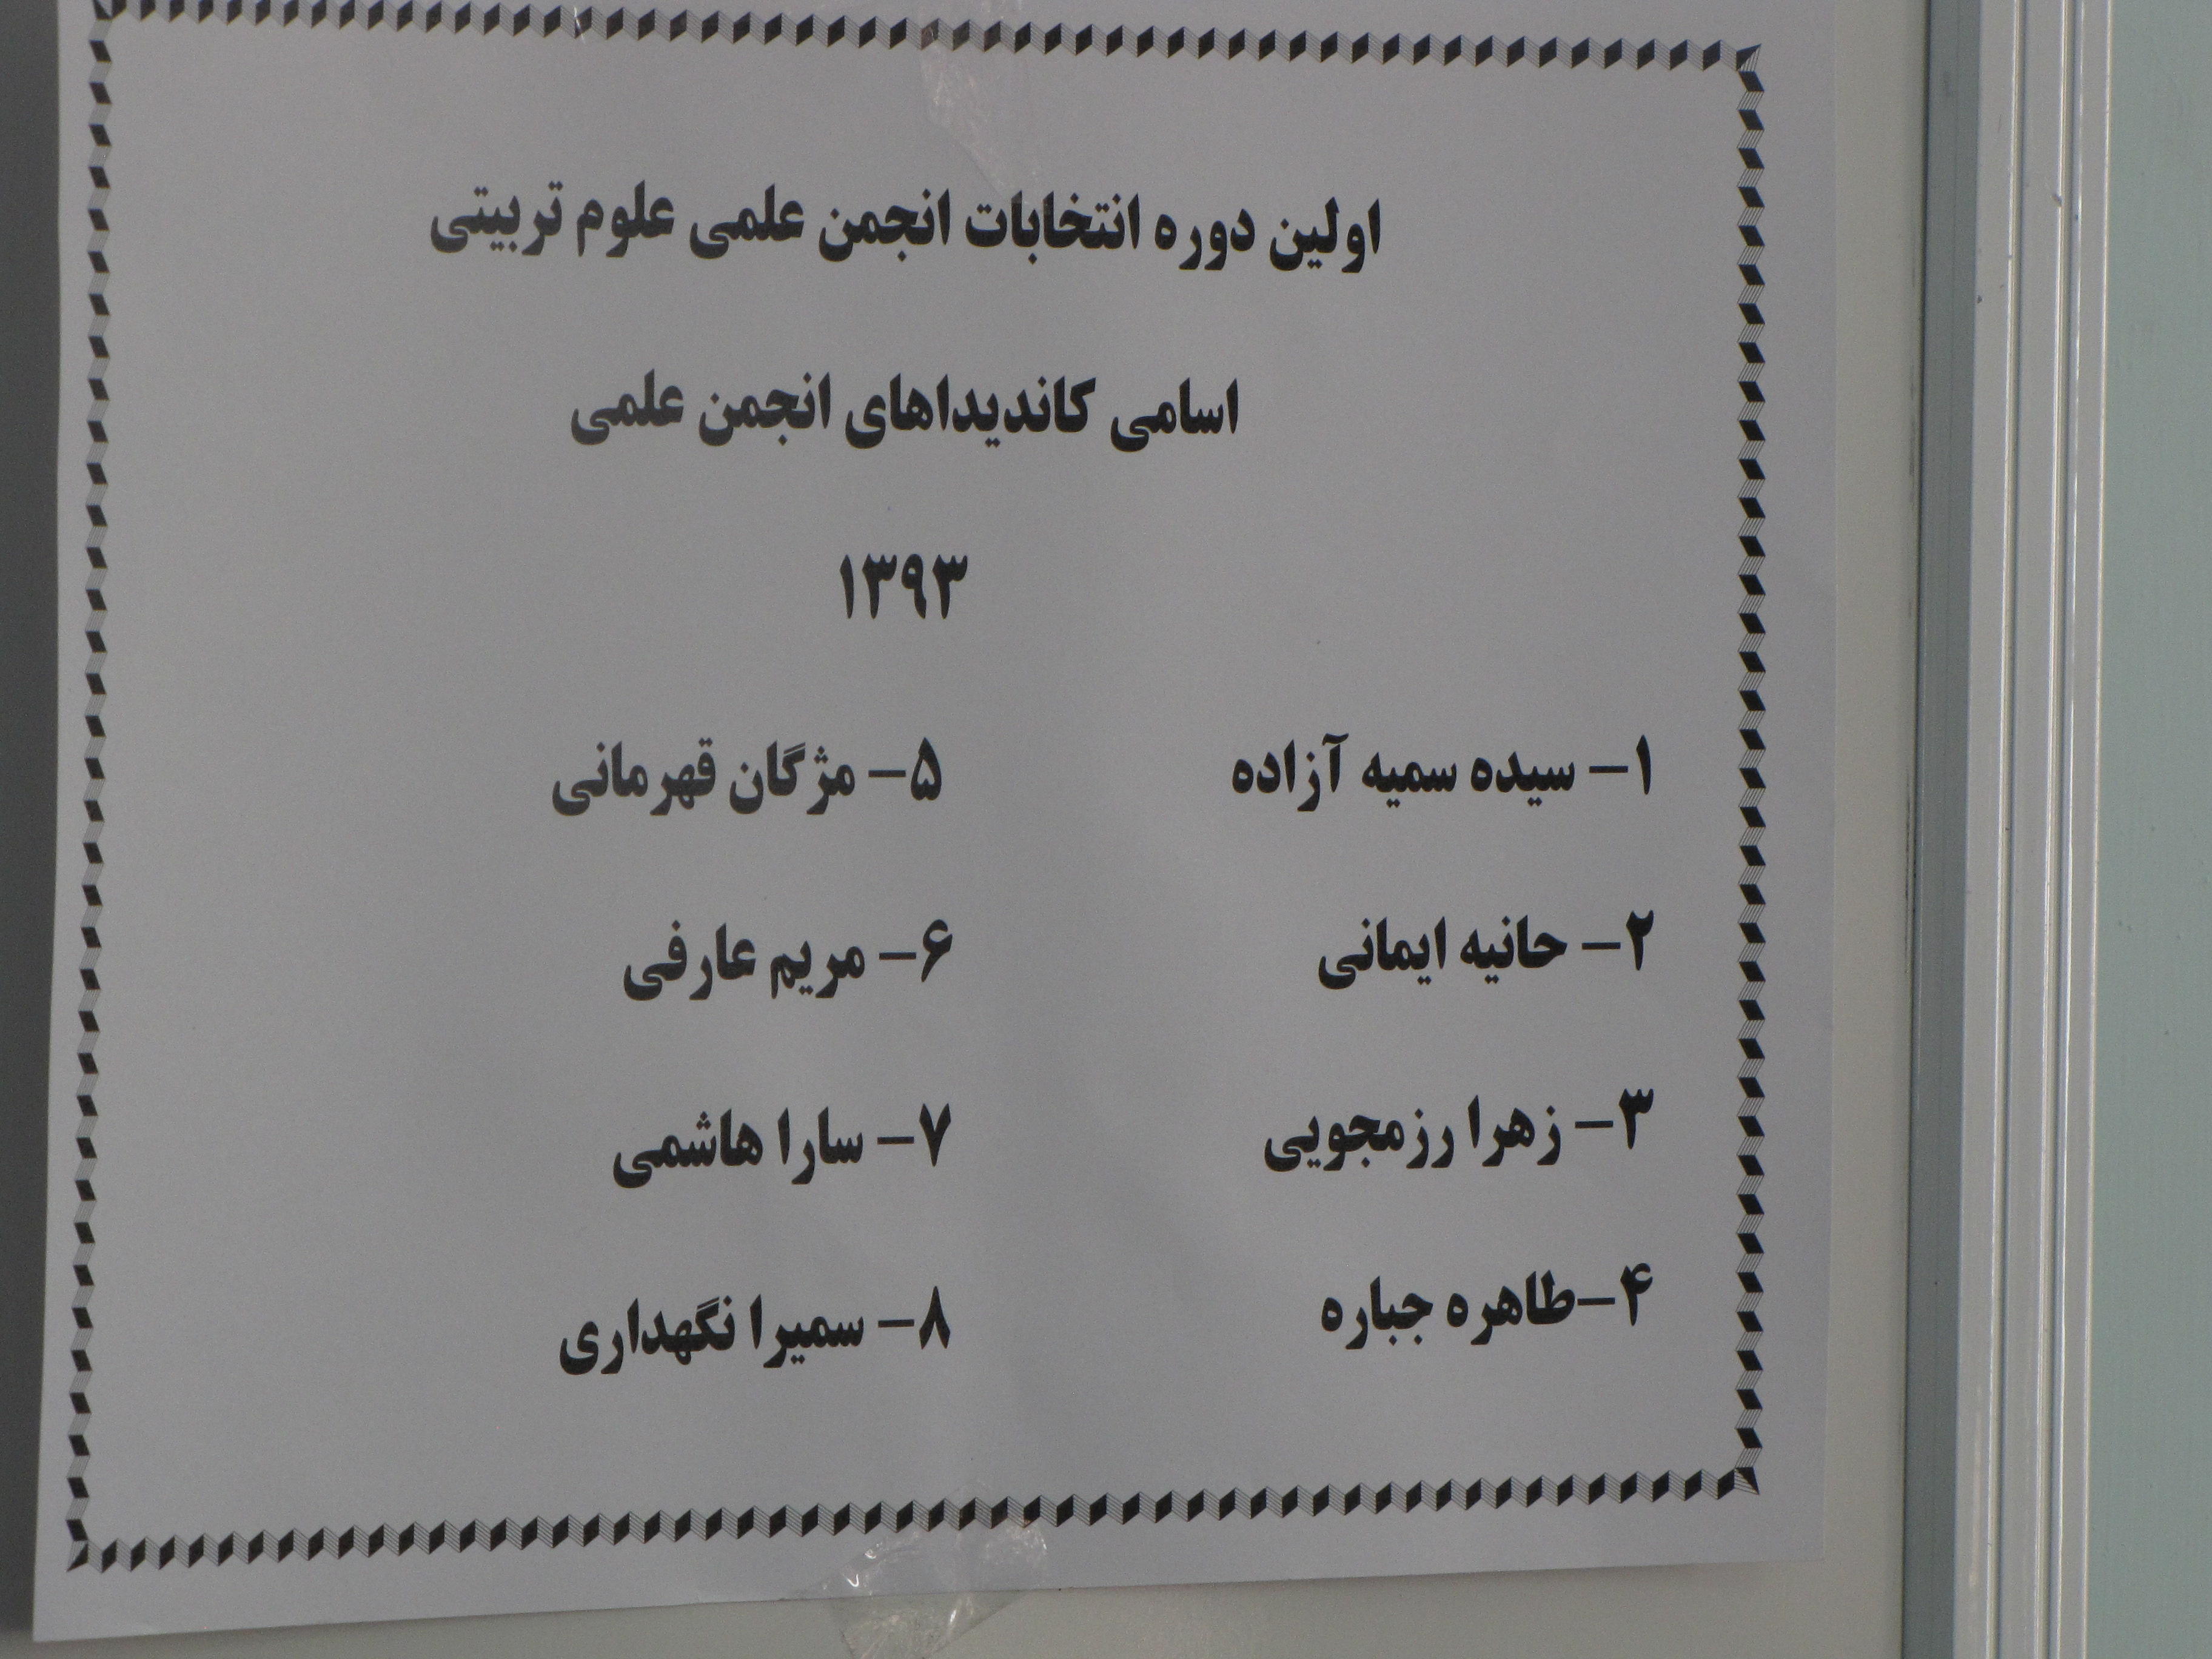 اولین دوره انتخابات انجمن علمی علوم تربیتی
اسامی کاندیداهای انجمن علمی
۱۳۹۳
۱- سیده سمیه آزاده
۲- حانیه ایمانی
۳- زهرا رزمجویی
۴-طاهره جباره
۵- مژگان قهرمانی
۶- مریم عارفی
۷- سارا هاشمی
۸- سمیرا نگهداری